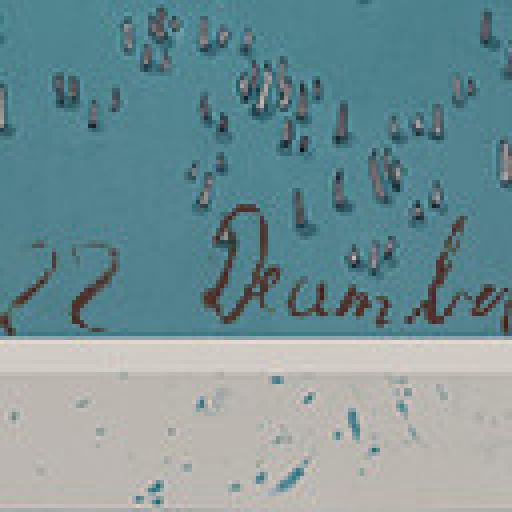 22 Decembe